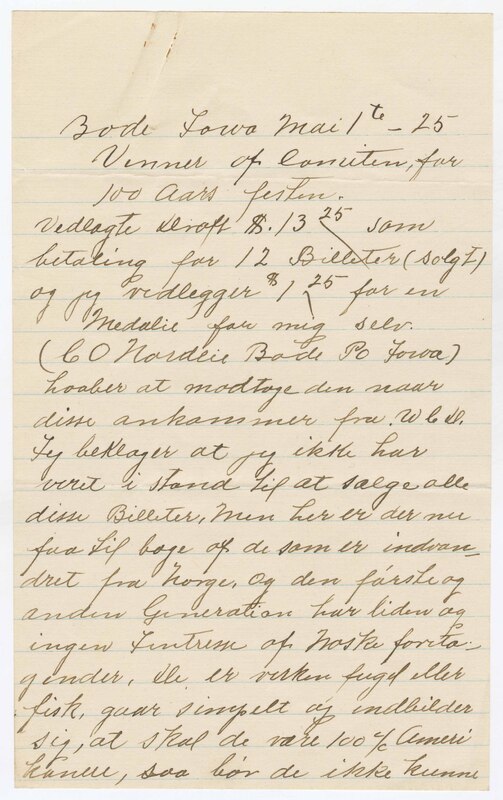 Bode Iowa Mai 1te - 25
Venner af Comiten, for
100 Aars festen.
Vedlagte Draft $.13 25 som
betaling for 12 Billeter (solgt)
og jeg vedlegger $1 25 for en
Medalie for mig selv.
(C O Nordeie Bode Po Iowa)
haaber at modtage den naar
disse ankommer fra. W C D.
Jeg beklager at jeg ikke har
veret i stand til at sælge alle
disse Billeter, Men her er der nu
faa til bage af de som er indvan-
dret fra Norge. Og den første og
anden Generation har liden og
ingen Intresse af Noske foreta-
gender, De er verken fugl eller
fisk, gaar simpelt og indbilder
sig, at skal de være 100% Ameri
kanere, saa bør de ikke kunne